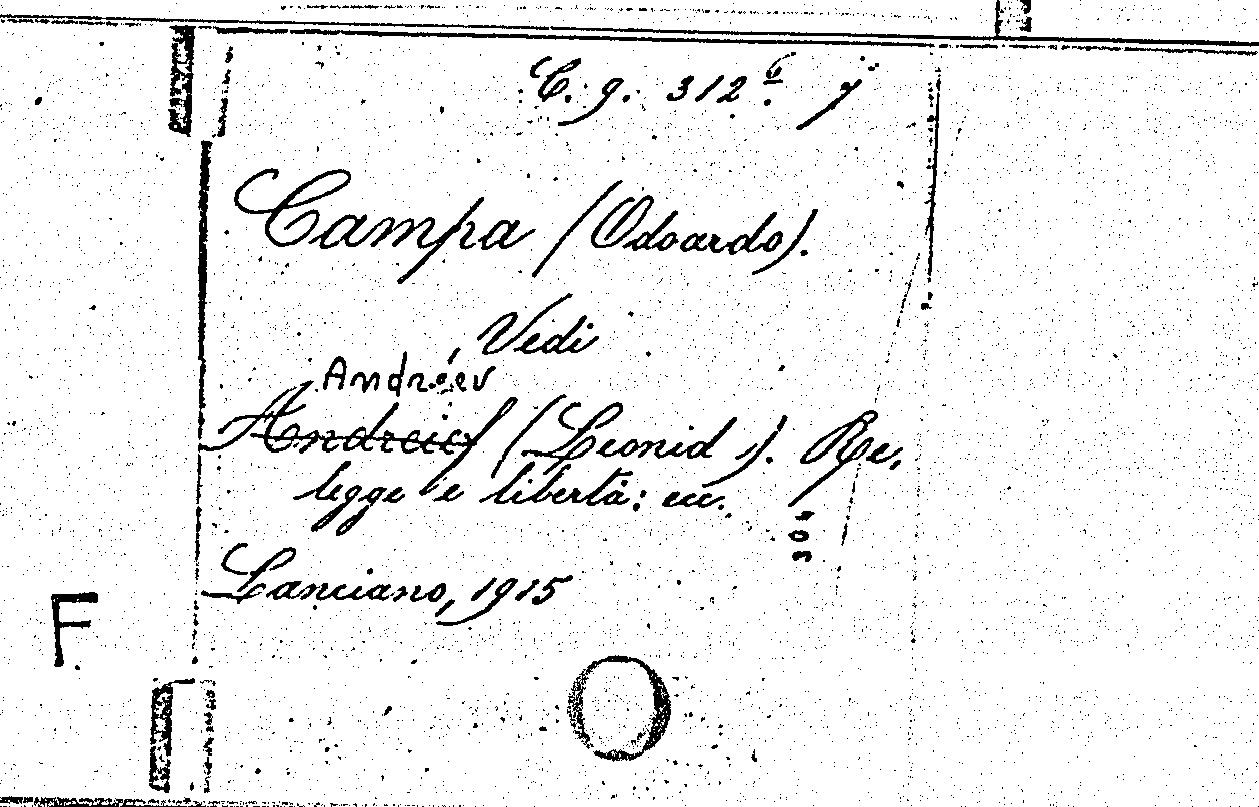 C. g. 312 6. 7
Campa (Odoardo).
Vedi
Andréev
Andreief (Leonid ). Re,
legge e libertà: ecc.
304
Lanciano, 1915
F